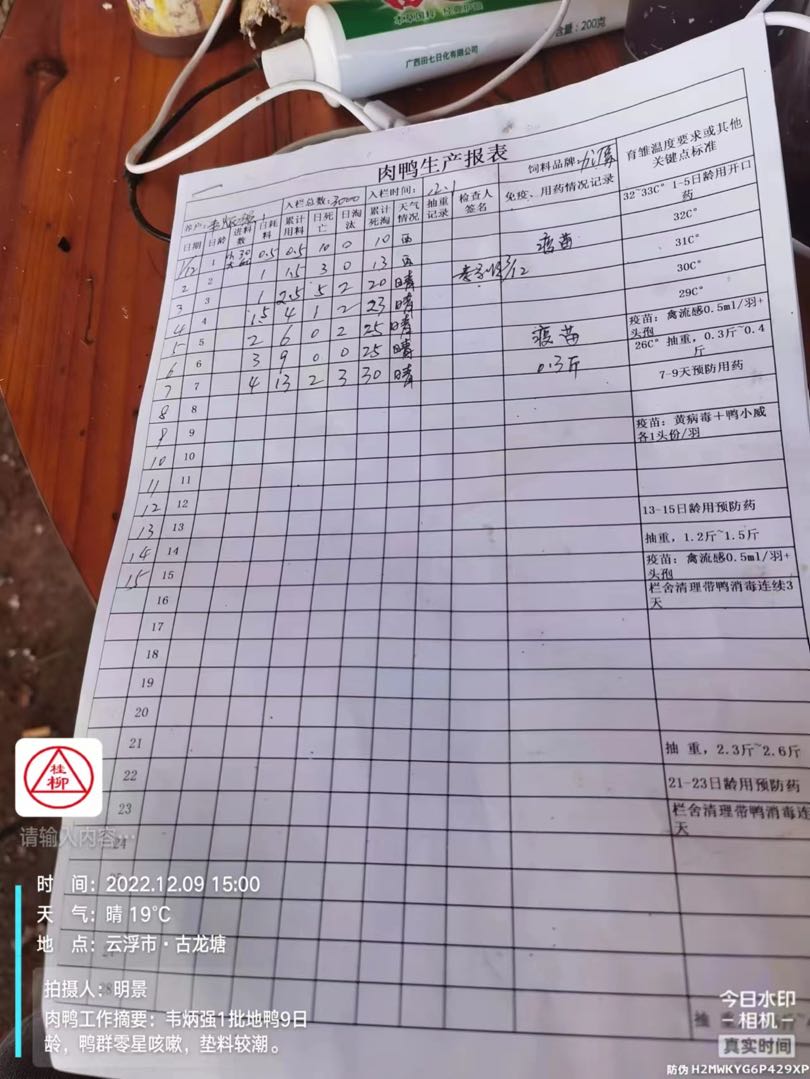 广西田七日化有限公司
含量：200克
肉鸭生产报表
入栏总数：3000 入栏时间：12.1 饲料品牌
育雏温度要求或其他关键点标准
日期 日龄 进料数 日耗料 累计用料 日死亡 日淘汰 累计死淘 天气情况 抽重记录 检查人签名 免疫、用药情况记录
32~33C° 1-5日龄用开口药
1/12 1 0.5 0.5 10 0 10 雨 疫苗 32C°
2 2 1 1.5 3 0 13 雨 31C°
3 3 1 2.5 5 2 20 晴 30C°
4 4 1.5 4 1 2 23 晴 29C°
5 5 2 6 0 2 25 晴 疫苗 疫苗：禽流感0.5ml/羽+头孢
6 6 3 9 0 0 25 晴 0.3斤 26C° 抽重，0.3斤~0.4斤
7 7 4 13 2 3 30 晴 7-9天预防用药
8 8
9 9 疫苗：黄病毒＋鸭小威各1头份/羽
10 10
11 11
12 12 13-15日龄用预防药
13 13 抽重，1.2斤~1.5斤
14 14 疫苗：禽流感0.5ml/羽+头孢
15 15 栏舍清理带鸭消毒连续3天
16
17
18
19
20
21 抽 重，2.3斤~2.6斤
22 21-23日龄用预防药
23 栏舍清理带鸭消毒连
天
24
桂柳
请输入内容…
时 间：2022.12.09 15:00
天 气：晴 19℃
地 点：云浮市·古龙塘
拍摄人：明景
肉鸭工作摘要：韦炳强1批地鸭9日
龄，鸭群零星咳嗽，垫料较潮。
抽
今日水印
相机
真实时间
防伪 H2MWKYG6P429XF